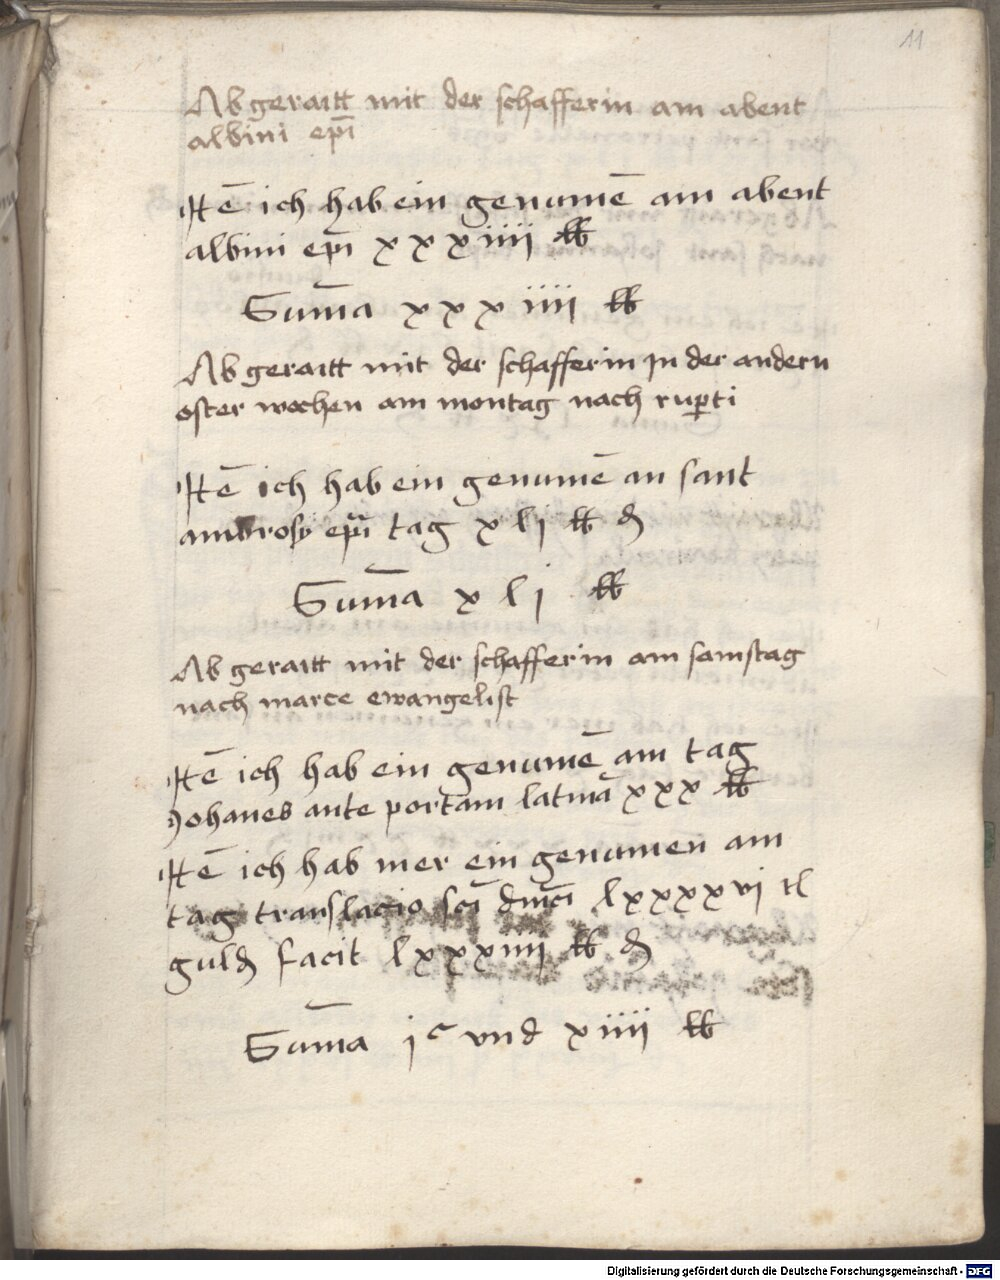 11
Abgeraitt mit der schafferin am abent
albini ep̄i
Itē ich hab ein genumē am abent
albini ep̄i xxxiiii lb
Sum̄a xxxiiii lb
Abgeraitt mit der schafferin Jn der andern
oster wochen am montag nach ruperti
Itē ich hab ein genumē an sant
ambrosy ep̄i tag xlj lb ₰
Sum̄a xlj lb
Abgeraitt mit der schafferin am samstag
nach marce ewangelist
Itē ich hab ein genumē am tag
Johanes ante portam latinā xxx lb
Itē ich hab mer ein genumen am
tag translacio sc̄i dm̄ci lxxxxvi
guld facit lxxxiiii lb ₰
Sum̄a jᶜ vnd xiiii lb
Digitalisierung gefördert durch die Deutsche Forschungsgemeinschaft - DFG